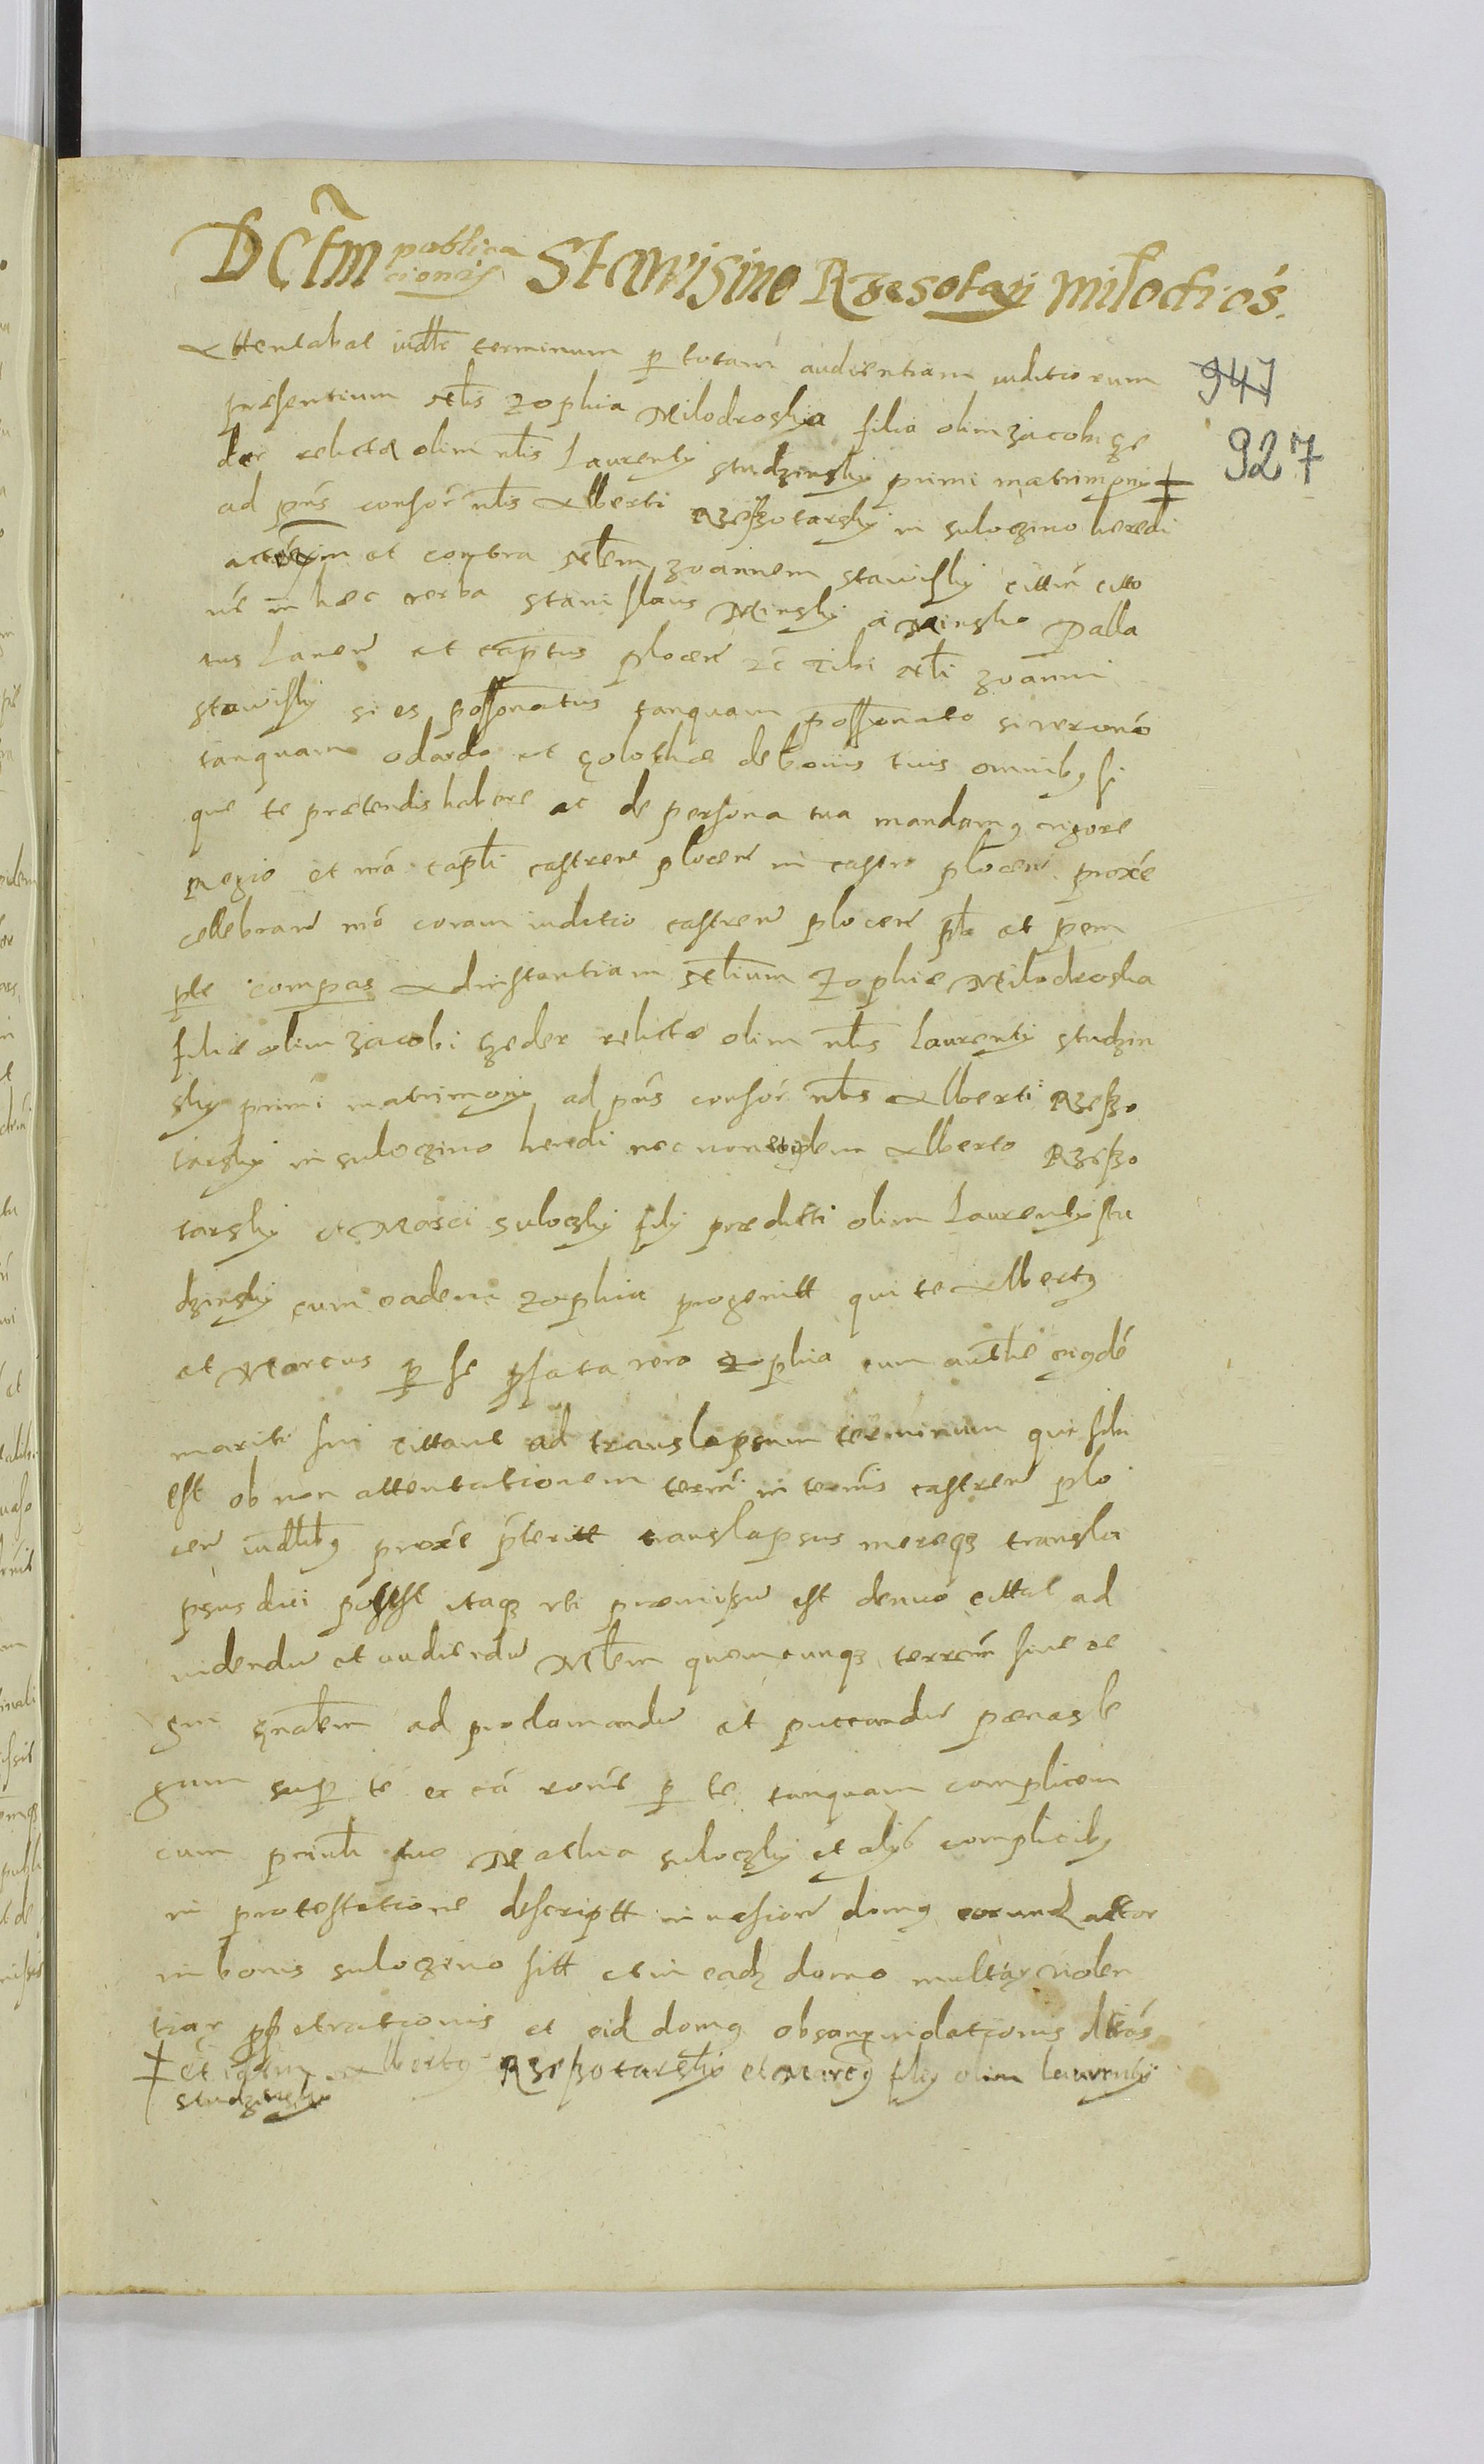 Dctm publica cionis Stawisino Rzesotarj milodros.
Attentabat iudltr terminum p totam audientiam iuditiorum
947
presentium Nblis Zophia Milodroska filia olim Jacobi Sze
927
der relicta olim nblis Laurentij Studzinskij primi matrimonij ‡
ad pns consor nblis Alberti Rzeßotarskij in suloczino heredi
in et contra Nblem Joannem Stawiskij cittm citto
ne in hæc verba Stanislaus Minskij a Minsko Palla
tus Lancen et captus plocen Tibi Nbli Joanni
Stawiskij si es possonatus tanquam possonato si vero no
tanquam odardo et golothæ de bonis tuis omnibq si
que te prætendis habere ac de persona tua mandamq vigore
Regio et mo captli castren plocen in castro plocen proxe
cellebran mo coram iuditio castren plocen pla et pem
pte compas Ad instantiam Nblium Zophiæ Milodroska
filiæ olim Jacobi Szeder relictæ olim nblis Laurentij Studzin
skij primi matrimonij ad pns consor nblis Alberti Rzeßo
tarskij in suloczino heredi nec non eidem Alberto Rzeßo
tarskij et Marci suloczkij filij prædicti olim Laurentij stu
dzinskij cum eadem Zophia progenitt qui te Albertq
et Marcus p se pfata vero Zophia cum authte eiqde
mariti sui cittant ad translapsum terminum qui sibi
est ob non attentationem termi in termis castren plo
cen iudtibq proxe pteritt translapsus mereqz transla
psus dici potest itaqz ubi præmißu est denuo cittat ad
videndu et audiendu Mblem quemcunqz terrem siue re
gm gnalem ad proclamandu et puccandu pænas le
gum sup te ex ea rone p te tanquam complicem
cum prinli tuo Mathia suloczkij et alijs complicibq
in protestatione descriptt inuasion domq eorund actor
in bonis suloczino sitt et in eadz domo multar violen
tiar ppetrationis et eid domq obsanquidationis dtras
‡ et idem Albertq Rzeßotarskij et Marcq filij olim Laurentij
Studzinskij